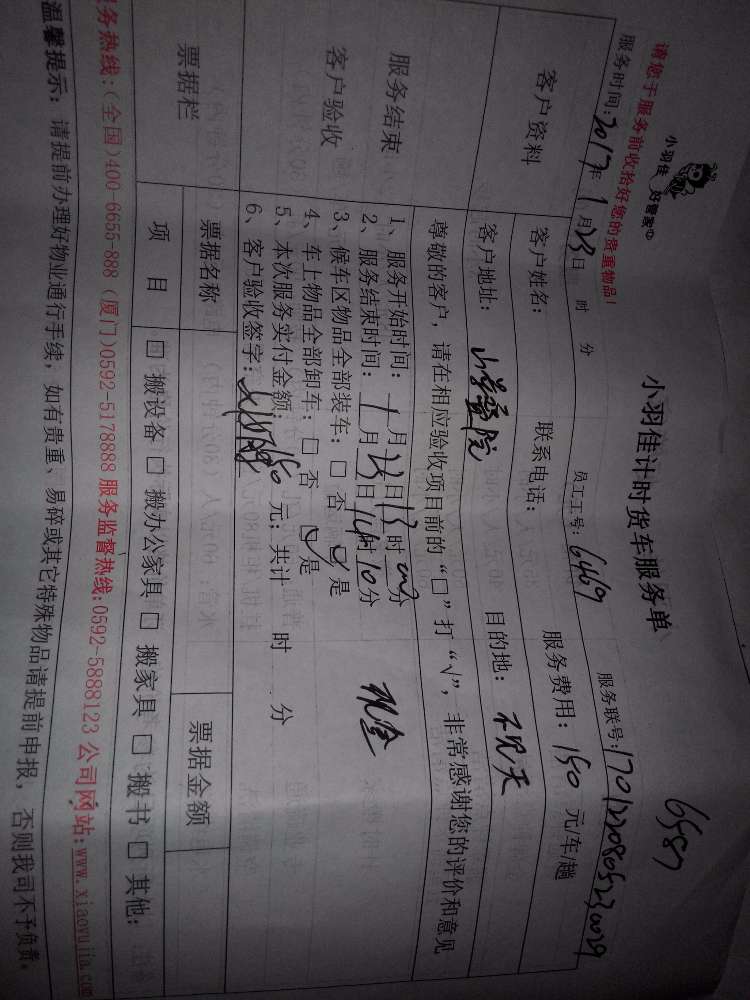 小羽佳 好管家
请您于服务前收拾好您的贵重物品!
6587
小羽佳计时货车服务单
服务时间:2017年1月23日 时 分 员工工号:6469 服务联号:
客户资料
客户姓名: 联系电话: 服务费用:150元/车/趟
客户地址: 目的地:
服务结束
客户验收
尊敬的客户,请在相应验收项目前的“□”打“√”,非常感谢您的评价和意见
1、服务开始时间:1月23日13时00分
2、服务结束时间:1月23日14时10分
现金
3、候车区物品全部装车:□否 ☑是
4、车上物品全部卸车:□否 ☑是
5、本次服务实付金额:150元;共计 时 分
6、客户验收签字:
票据栏
票据名称 票据金额
项 目 □搬设备 □搬办公家具 □搬家具 □搬书 □其他:
服务热线:(全国)400-6655-888 (厦门)0592-5178888 服务监督热线:0592-5888123 公司网站:www.xiaoyujia.com
温馨提示: 请提前办理好物业通行手续,如有贵重、易碎或其它特殊物品请提前申报,否则我司不予负责。